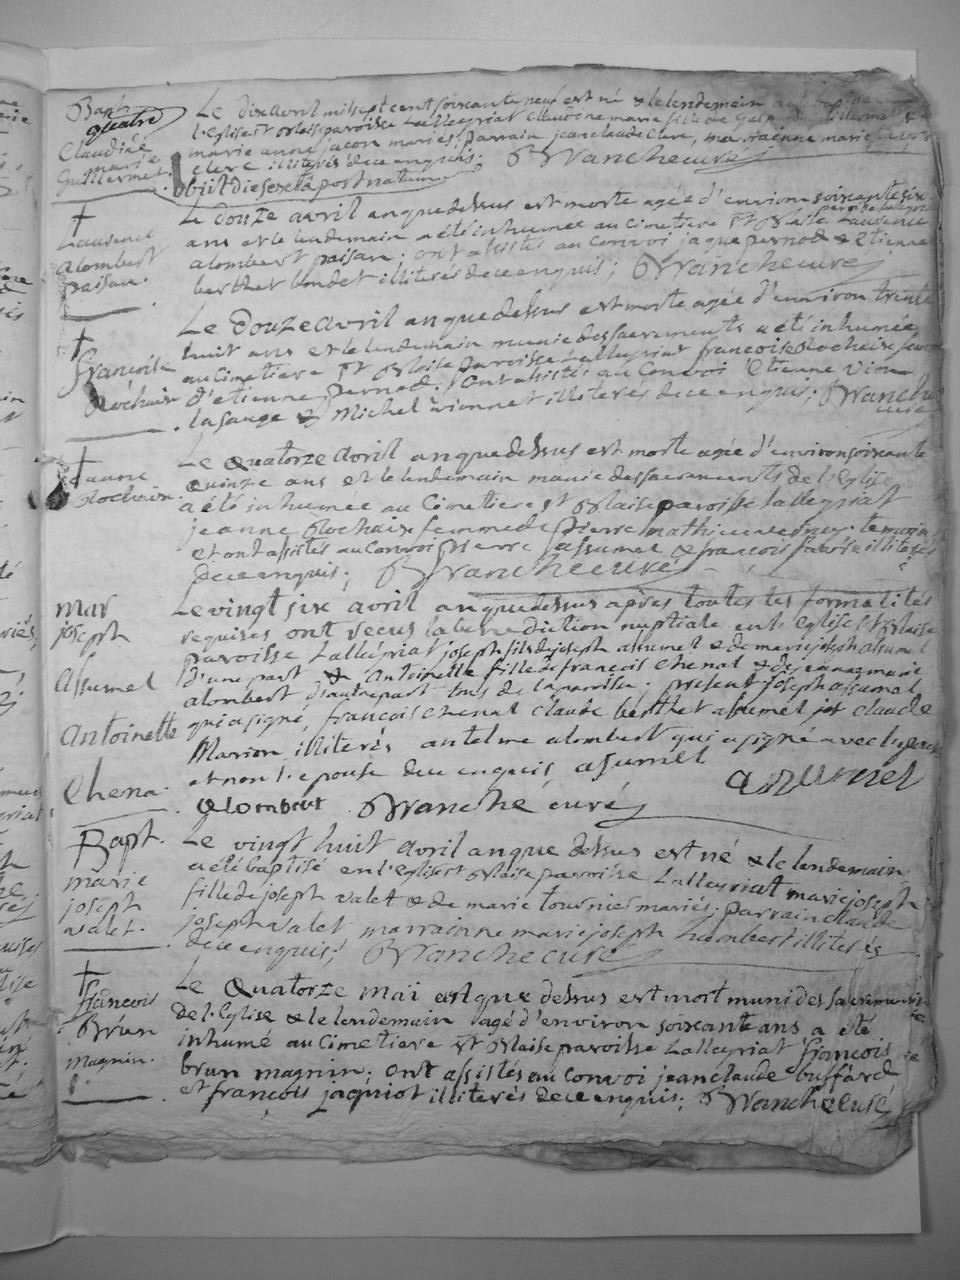 Bapt
quatre
Claudine
marie
Guillermet.
Le dix avril mil sept cent soixante neuf est né & le lendemain a été baptisée
l'Eglise St Blaise paroisse Lalleyriat Claudine marie fille de
marie anne jacon mariés; parrain jean claude Clerc, marrainne marie
Clerc illiterés de ce enquis; Blanche curé
obiit die sexta post natum
†
Laurence
alombert
paisan.
Le douze avril an que dessus est morte agée d'environ soixante six
ans et le lendemain a été inhumée au Cimetiere St Blaise Laurence
alombert paisan; ont assistés au Convoi jaque pernod & Etienne
berthet bondet illiterés de ce enquis; Blanche curé
†
françoise
Blochaix
Le Douze avril an que dessus est morte agée d'environ trente
huit ans et le lendemain munie des sacrements a été inhumée
au Cimetiere St Blaise paroisse Lalleyriat françoise Blochaix
d'etienne pernod; Ont assistés au Convoi Etienne
la sauge & Michel vionnet illiterés de ce enquis; Blanche
curé
†
jeanne
Blochaix.
Le Quatorze avril an que dessus est morte agée d'environ soixante
Quinze ans et le lendemain munie des sacrements de l'Eglise
a été inhumée au Cimetiere St Blaise paroisse Lalleyriat
jeanne Blochaix femme de pierre mathieu
et ont assistés au Convoi pierre assumel & françois illiterés
de ce enquis; Blanche curé
Mar
joseph
assumel
Antoinette
Chena.
Le vingt six avril an que dessus apres toutes les formalités
requises ont recus la benediction nuptiale en l'Eglise St Blaise
paroisse Lalleyriat joseph fils de joseph assumel & de marie joseph assumel
d'une part & Antoinette fille de françois Chenal & de jeanne marie
alombert d'autre part tous de la paroisse; present joseph assumel
qui a signé, françois Chenal Claude berthet assumel jot Claude
Marion illiterés antelme alombert qui a signé avec l'epoux
et non l'epouse de ce enquis assumel assumel
Alombert Blanche curé
Bapt.
marie
joseph
valet.
Le vingt huit avril an que dessus est né & le lendemain
a été baptisé en l'Eglise St Blaise paroisse Lalleyriat marie joseph
fille de joseph valet & de marie tournier mariés; parrain Claude
joseph valet marrainne marie joseph humbert illiterés
de ce enquis; Blanche curé
†
françois
Brun
magnin.
Le Quatorze mai an que dessus est mort muni des sacrements
de l'Eglise & le lendemain agé d'environ soixante ans a été
inhumé au Cimetiere St Blaise paroisse Lalleyriat françois
brun magnin; Ont assistés au convoi jean claude buffard
et françois jaquiot illiterés de ce enquis; Blanche curé